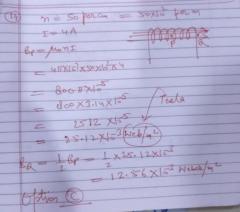 (14) n = 50 per cm = 50x10² per m
I = 4A
Bp = μ₀nI
= 4πx10⁻⁷x50x10²x4
= 800πx10⁻⁵
= 800x3.14x10⁻⁵
= 2512 x10⁻⁵ Tesla
= 25.12x10⁻³ (Web/m²)
BQ = 1/2 Bp = 1/2 x25.12x10⁻³
= 12.56 x10⁻³ Weber/m²
Option (C)
P
Q